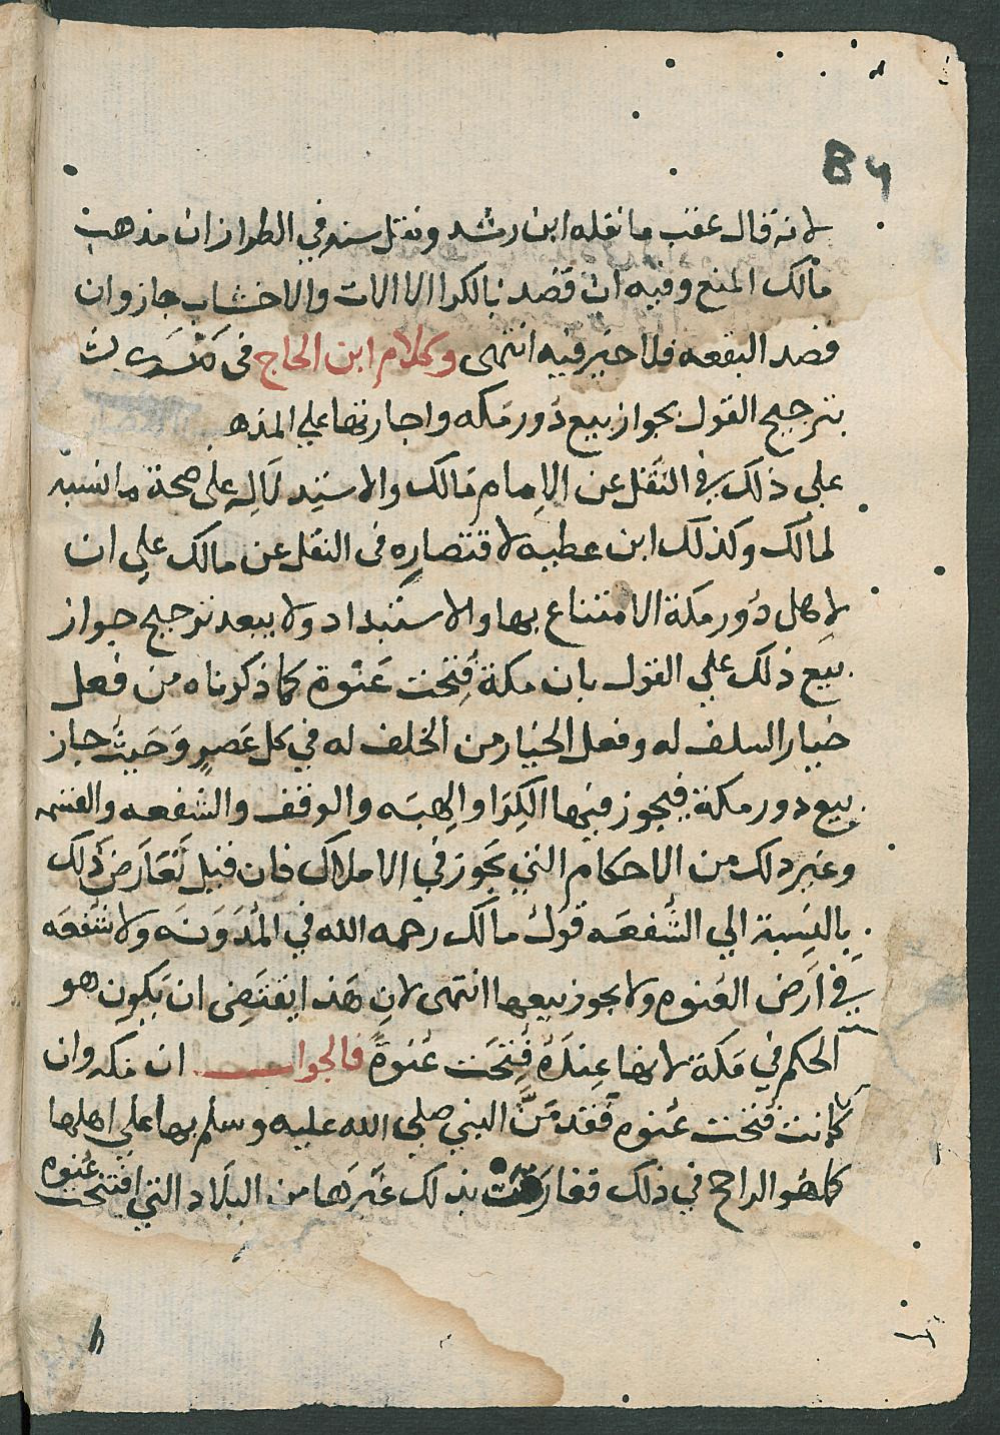 84
لانه قال عقب ما نقله ابن رشد ونقل سند في الطراز ان مذهب
مالك المنع وفيه ان قصد بالكرا الالات والاخشاب جاز وان
قصد البقعه فلا خير فيه انتهى وكلام ابن الحاج في
بترجيح القول بجواز بيع دور مكه واجارتها علي المذهب
علي ذلك في النقل عن الامام مالك والاستدلاله على صحة ما نسبه
لمالك وكذلك ابن عطيه لاقتصاره فى النقل عن مالك علي ان
لاهل دُور مكة الامتناع بها والاستبداد ولا يبعد ترجيح جواز
بَيع ذلك علي القول بان مكة فُتِحَت عَنْوة كما ذكرناه من فعل
خيار السلف له وفعل الخيار من الخلف له في كل عَصرٍ وَحَيثُ جاز
بيع دور مكة فيجوز فيها الكِرَا والهِبَه والوقف والشفعه والقسمه
وغير ذلك من الاحكام التي تجوز في الاملاك فان قيل تَعَارَضَ ذلك
بالنِسبة الي الشُفعَه قَولُ مالك رحمه الله في المُدَوَنَه ولا شُفعَه
في اَرَض العَنوه ولا يجوز بيعها انتهى لان هَذا يقتَضِى ان يَكون هو
الحكم في مَكة لانها عِندَهُ فُتِحَت عُنوةً فالجواب ان مكه وان
كانت فتحت عنوه فقد مَنَّ النبي صلي الله عليه وسلم بها علي اهلها
كما هُو الراجح في ذلك ففارَقت بذلك غَيرَها من البلَاد التي افتتحت عنوه